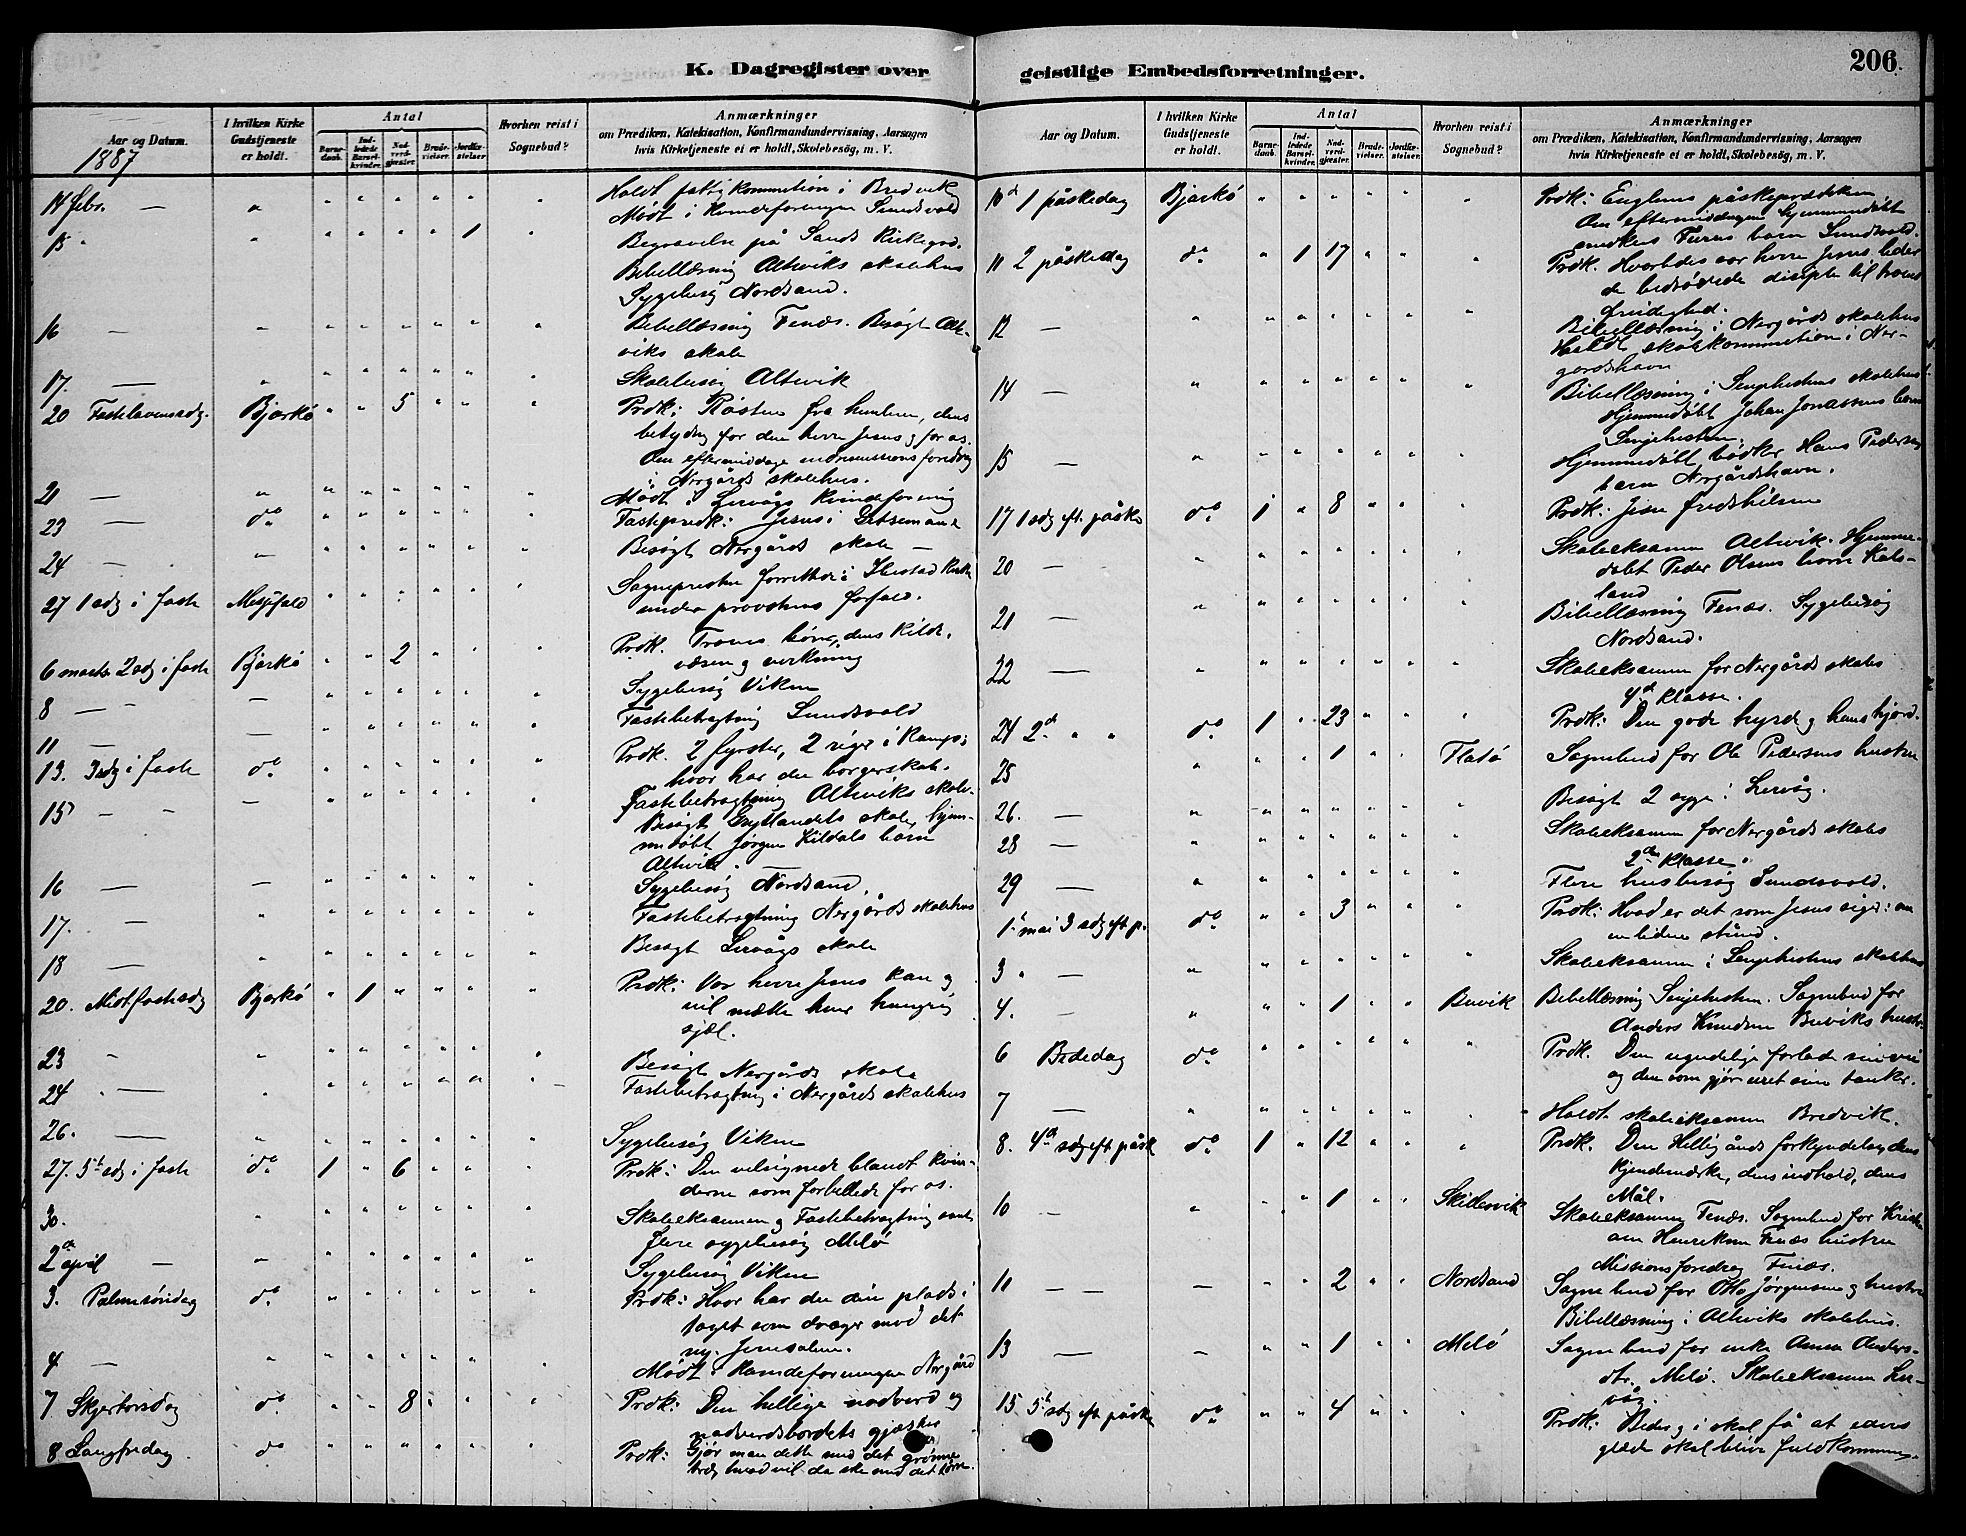 206.
K. Dagregister over geistlige Embedsforretninger.
Aar og Datum.
1887
I hvilken Kirke Gudstjeneste er holdt.
Antal
Barnedaab.
Indledede Barselkvinder.
Nadverdgjester.
Brudevielser.
Jordfæstelser.
Hvorhen reist i Sognebud?
Anmærkninger
om Prædiken, Katekisation, Konfirmandundervisning, Aarsagen
hvis Kirketjeneste ei er holdt, Skolebesög, m. V.
14 febr. — " " " " " " " Holdt fattigkommission i Bredvik
Mødt i Kvindeforeningen Sundsvold
15 " " " " " " 1 " Begravelse på Sands Kirkegrd.
Bibellæsning Alteviks skolehus
Sygebesøg Nordsand.
16 — " " " " " " " Bibellæsning Fenæs. Besøgt Alte-
viks skole
17. — " " " " " " " Skolebesøg Altevik
20 Fastelavenssdg. Bjarkö " " 5 " " " Prdk: Røsten fra himlen, dens
betydng for den herre Jesus og for os.
Om eftermiddage indremissions foredrag
i Nergårds skolehus.
21 — " " " " " " " Mødt i Lervågs kvindeforening
23 — do " " " " " " Fasteprdk: Jesus i Getsemane
24 — — " " " " " " Besøgt Nergårds skole —
27 1 sdg i faste Mesfald " " " " " " Sognepresten forretter i Ibestad Kirke
under provstens forfald.
6 marts 2 sdg i faste Bjarkö " " 2 " " " Prdk. Troens bøn, dens kilde,
væsen og virkning
8 — — " " " " " " Sygebesøg Viken
11 — — " " " " " " Fastebetragtning Sundsvold
13. 3 sdg i faste do " " " " " " Prdk. 2 fyrster, 2 riger i Kamp;
hvor har du borgerskab.
15 — — " " " " " " Fastebetragtning Alteviks skole.
Besøgt Grytlandets skole, hjem-
medøbt Jørgen Kildals barn
Altevik.
16 — — " " " " " " Sygebesøg Nordsand.
17. — " " " " " " " Fastebetragtning Nergårds skolehus
18 — " " " " " " " Besøgt Lervågs skole
20. Midtfastesdg Bjarkö " 1 " " " " Prdk: Vor herre Jesus kan og
vil mætte hver hungrig
sjæl.
23 " " " " " " " " Besøgt Nergårds skole
24 — " " " " " " " Fastebetragtng i Nergårds skolehus
26. — " " " " " " " Sygebesøg Viken
27. 5te sdg i faste do 1 " 6 " " " Prdk: Den velsignede blandt kvin-
derne som forbillede for os.
30. " " " " " " " Skoleeksamen og Fastebetragtning samt
flere sygebesøg Melö
2den april — — " " " " " " Sygebesøg Viken
3. Palmesöndag do " " " " " " Prdk: Hvor har du din plads i
toget som drager mod det
ny. Jerusalem.
4 — " " " " " " " Mødt i Kvindeforeningen Nergård
7 Skjertorsdag do " " 8 " " " Prdk: Den hellige nadverd og
nadverdsbordets gjæster
8 Langfredag do " " " " " " Prdk: Gjør man dette med det grønne
træ, hvad vil da ske med det tørre.
Aar og Datum.
I hvilken Kirke Gudstjeneste er holdt.
Antal
Barnedaab.
Indledede Barselkvinder.
Nadverdgjester.
Brudevielser.
Jordfæstelser.
Hvorhen reist i Sognebud?
Anmærkninger
om Prædiken, Katekisation, Konfirmandundervisning, Aarsagen
hvis Kirketjeneste ei er holdt, Skolebesög, m. V.
10d 1 påskedag Bjarkö " " " " " " Prdk: Englens påskeprædiken
Om eftermiddagen hjemmedøbt
snedker Furus barn Sundsvold.
11 2 påskedag do " 1 17 " " " Prdk. Hvorledes vor herre Jesus leder
de bedrövede disiple til troens
frimodighed.
12 — " " " " " " " Bibellæsning i Nergårds skolehus
Holdt skolekommission i Ner-
gårdshavn
14 — " " " " " " " Bibellæsning i Senjehestens skolehus
Hjemmedøbt Johan Jonassens barn
Senjehesten.
15 — " " " " " " " Hjemmedøbt bødker Hans Pedersens
barn Nergårdshavn.
17 1 sdg eft påske do 1 " 8 " " " Prdk: Jesu fredshilsen
20 — " " " " " " " Skoleeksamen Altevik. Hjemme-
døbt Peder Olsens barn Kals-
land
21 — " " " " " " " Bibellæsning Fenæs. Sygebesøg
Nordsand.
22 — " " " " " " " Skoleeksamen for Nergårds skoles
4d klasse.
24 2d " " do 1 " 23 " " " Prdk: Den gode hyrde og hans hjord.
25 " " " 1 " " Flatö Sognebud for Ole Pedersens hustru
26. — " " " " " " " Besøgt 2 syge i Lervåg.
28 — " " " " " " " Skoleeksamen for Nergårds skoles
2den klasse.
29 — " " " " " " " Flere husbesøg Sundsvold.
1. mai 3 sdg eft p. do " " 3 " " " Prdk: Hvad er det som Jesus siger: om
en liden stund.
3 " — " " " " " " " Skoleeksamen i Senjehestens skolehus
4. — " " " 1 " " Buvik Bibellæsning Senjehesten. Sognebud for
Anders Knudsen Buviks hustr.
6 Bededag do " " " " " " Prdk. Den ugudelige forlade sin vei
og den som gjør uret sine tanker.
7 — " " " " " " " Holdt skoleeksamen Bredvik.
8. 4d sdg eft påsk do 1 " 12 " " " Prdk. Den Hellig ånds forkyndelse, dens
kjendemærke, dens indhold, dens
Mål.
10 — " " " 1 " " Skillesvik Skoleeksamen Fenæs. Sognebud for Kristi-
an Henriksen Fenæs hustru
Missionsforedrag Fenæs.
11 — — " " 2 " " Nordsand Sognebud for Otto Jørgensen og hustru
Bibellæsning i Altviks skolehus.
13 — " " 1 " " Melö Sognebud for enke Anna Anders-
dtr. Melö. Skoleeksamen Ler-
våg.
15 5te sdg eft påske do " " 4 " " " Prdk: Beder, og i skal få at eders
glæde skal blive fuldkommen.